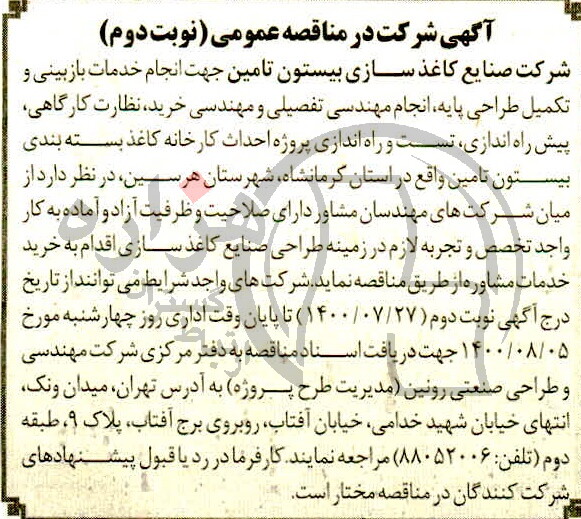 آگهی شرکت در مناقصه عمومی (نوبت دوم)
شرکت صنایع کاغذ سازی بیستون تامین جهت انجام خدمات بازبینی و
تکمیل طراحی پایه، انجام مهندسی تفصیلی و مهندسی خرید، نظارت کارگاهی،
پیش راه اندازی، تست و راه اندازی پروژه احداث کارخانه کاغذ بسته بندی
بیستون تامین واقع در استان کرمانشاه، شهرستان هرسین، در نظر دارد از
میان شرکت های مهندسان مشاور دارای صلاحیت و ظرفیت آزاد و آماده به کار
واجد تخصص و تجربه لازم در زمینه طراحی صنایع کاغذ سازی اقدام به خرید
خدمات مشاوره از طریق مناقصه نماید. شرکت های واجد شرایط می توانند از تاریخ
درج آگهی نوبت دوم (۱۴۰۰/۰۷/۲۷) تا پایان وقت اداری روز چهارشنبه مورخ
۱۴۰۰/۰۸/۰۵ جهت دریافت اسناد مناقصه به دفتر مرکزی شرکت مهندسی
و طراحی صنعتی رونین (مدیریت طرح پروژه) به آدرس تهران، میدان ونک،
انتهای خیابان شهید خدامی، خیابان آفتاب، روبروی برج آفتاب، پلاک ۹، طبقه
دوم (تلفن: ۸۸۰۵۲۰۰۶) مراجعه نمایند. کارفرما در رد یا قبول پیشنهادهای
شرکت کنندگان در مناقصه مختار است.
هزاره
گستران